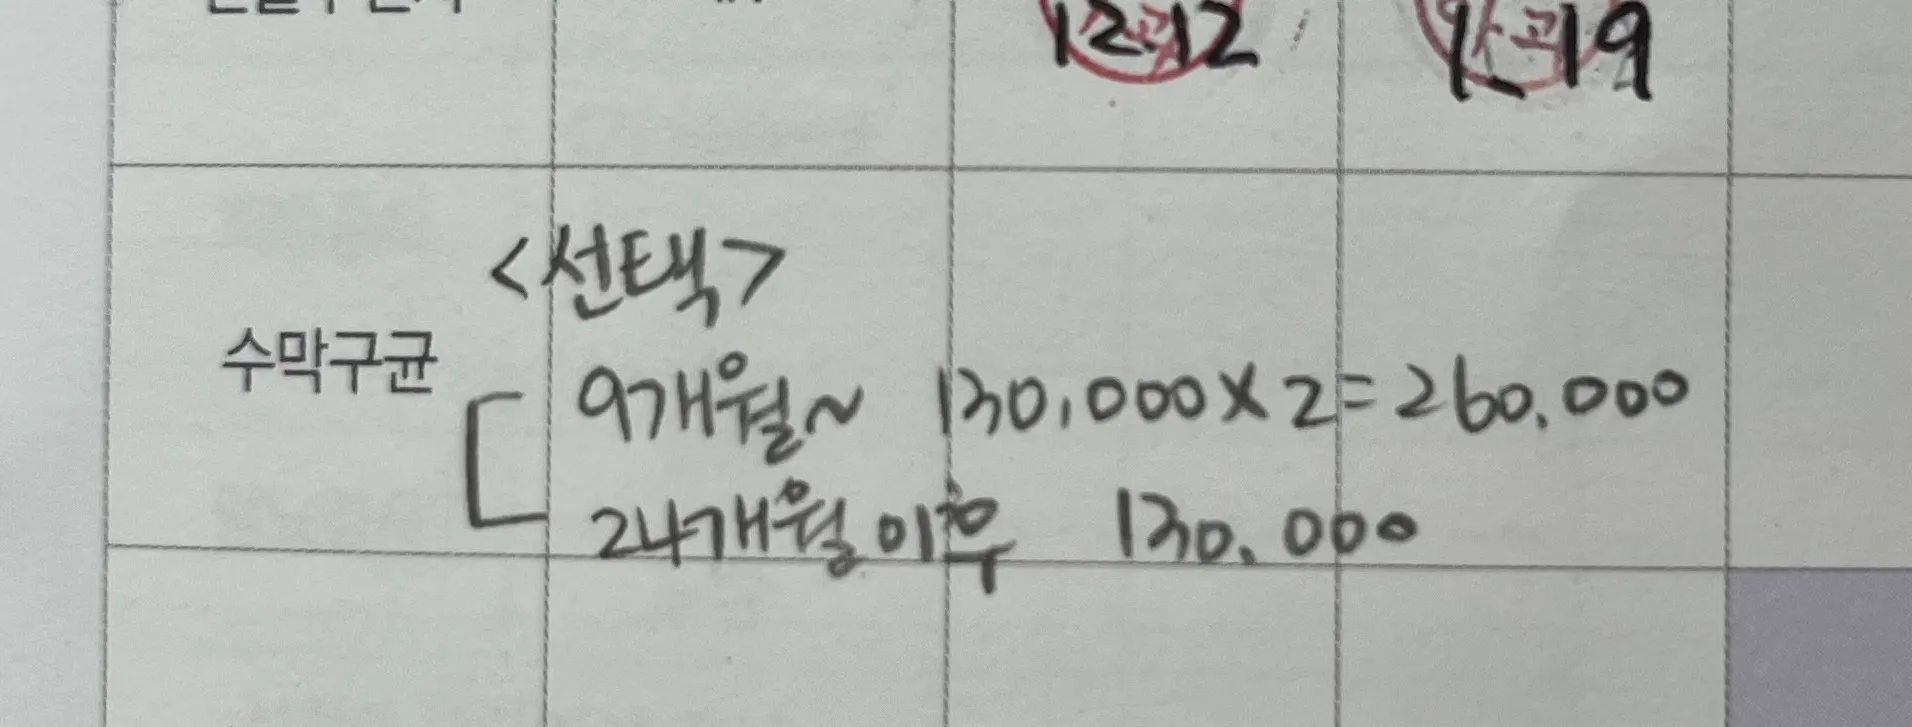 12.12
1_19
<선택>
수막구균
9개월~ 130,000×2=260,000
24개월 이후 130.000